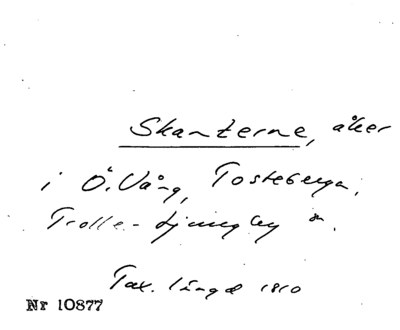 Skanterne, åker
i Ö. Vång, Tosteberga,
Trolle-Ljungby sn.
Tax. längd 1810
Nr 10877